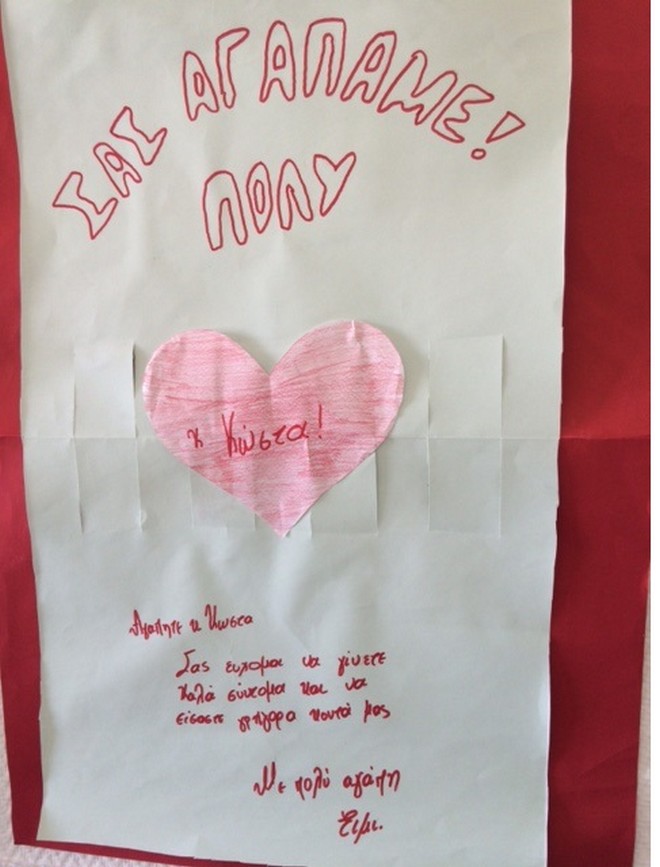 ΣΑΣ ΑΓΑΠΑΜΕ!
ΠΟΛΥ
κ Κώστα!
Αγαπητε κ Κωστα
Σας ευχομαι να γίνετε
καλά σύντομα και να
είσαστε γρήγορα κοντά μας
Με πολύ αγάπη